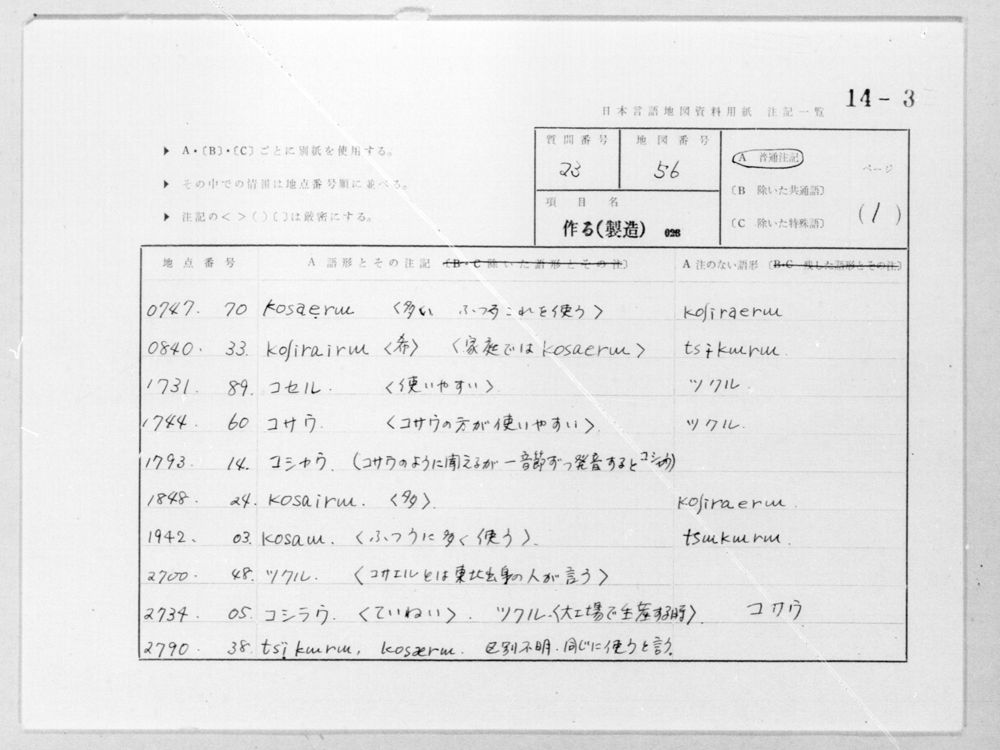 14-3
日本言語地図資料用紙 注記一覧
▶ A・〔B〕・〔C〕ごとに別紙を使用する。
▶ その中での情報は地点番号順に並べる。
▶ 注記の< >( )〔 〕は厳密にする。
質問番号 地図番号
23 56
項目名
作る(製造) 026
A 普通注記
〔B 除いた共通語〕
〔C 除いた特殊語〕
ページ
(1)
地点番号 A 語形とその注記 〔B・C 除いた語形とその注〕 A 注のない語形 〔B・C 残した語形とその注〕
0747. 70 kosaerɯ 〈多い ふつうこれを使う〉 koʃiraerɯ
0840. 33. koʃirairɯ 〈希〉 〈家庭ではkosaerɯ〉 tsɨkɯrɯ.
1731. 89. コセル. 〈使いやすい〉. ツクル.
1744. 60 コサウ. 〈コサウの方が使いやすい〉. ツクル.
1793. 14. コシャウ. (コサウのように聞えるが一音節ずつ発音するとコシャウ)
1848. 24. kosairɯ. 〈多〉. koʃiraerɯ.
1942. 03. kosaɯ. 〈ふつうに多く使う〉. tsɯkɯrɯ.
2700. 48. ツクル. 〈コサエルとは東北出身の人が言う〉
2734. 05. コシラウ. 〈ていねい〉. ツクル.〈大工場で生産する時〉 コサウ
2790. 38. tsïkɯrɯ, kosærɯ. 区別不明. 同じに使うと言う.